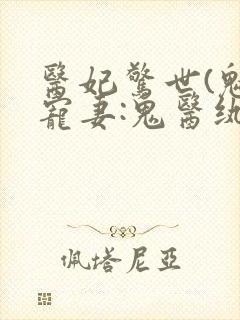 醫妃驚世(鬼
寵妻:鬼醫紈
佩塔尼亞